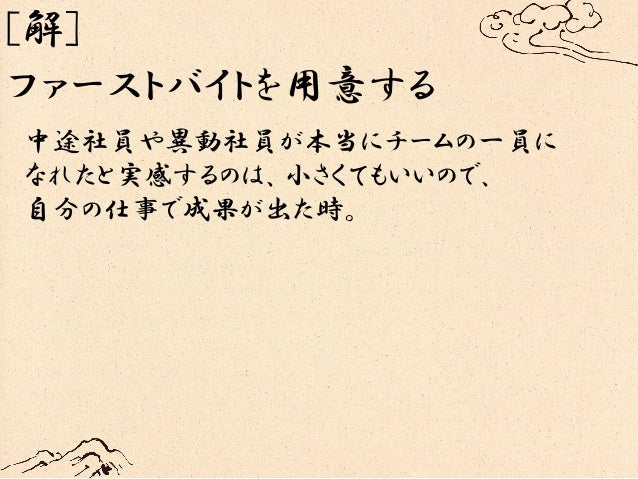 [解]
ファーストバイトを用意する
中途社員や異動社員が本当にチームの一員に
なれたと実感するのは、小さくてもいいので、
自分の仕事で成果が出た時。